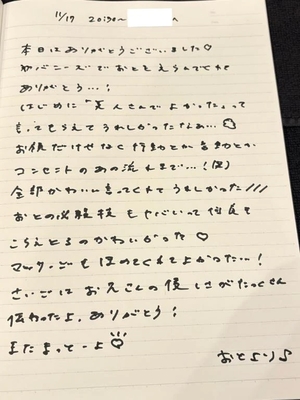 11/17 20:30〜 へ
本日はありがとうございました♡
おとをえらんでくれて
ありがとう…!
はじめに「美人さんでよかった」って
言ってもらえてうれしかったなぁ…
お顔だけじゃなく行動とか言動とか
コンセントのあの流れまで…!(笑)
全部かわいい言ってくれてうれしかった///
おとの必殺技もヤバいって
こらえとるのかわいかった♡
マッサージもほめてくれてよかった…!
さいごはお兄さんの優しさがたっくさん
伝わったよ、ありがとう!
またまってーよ♡
おとより♪